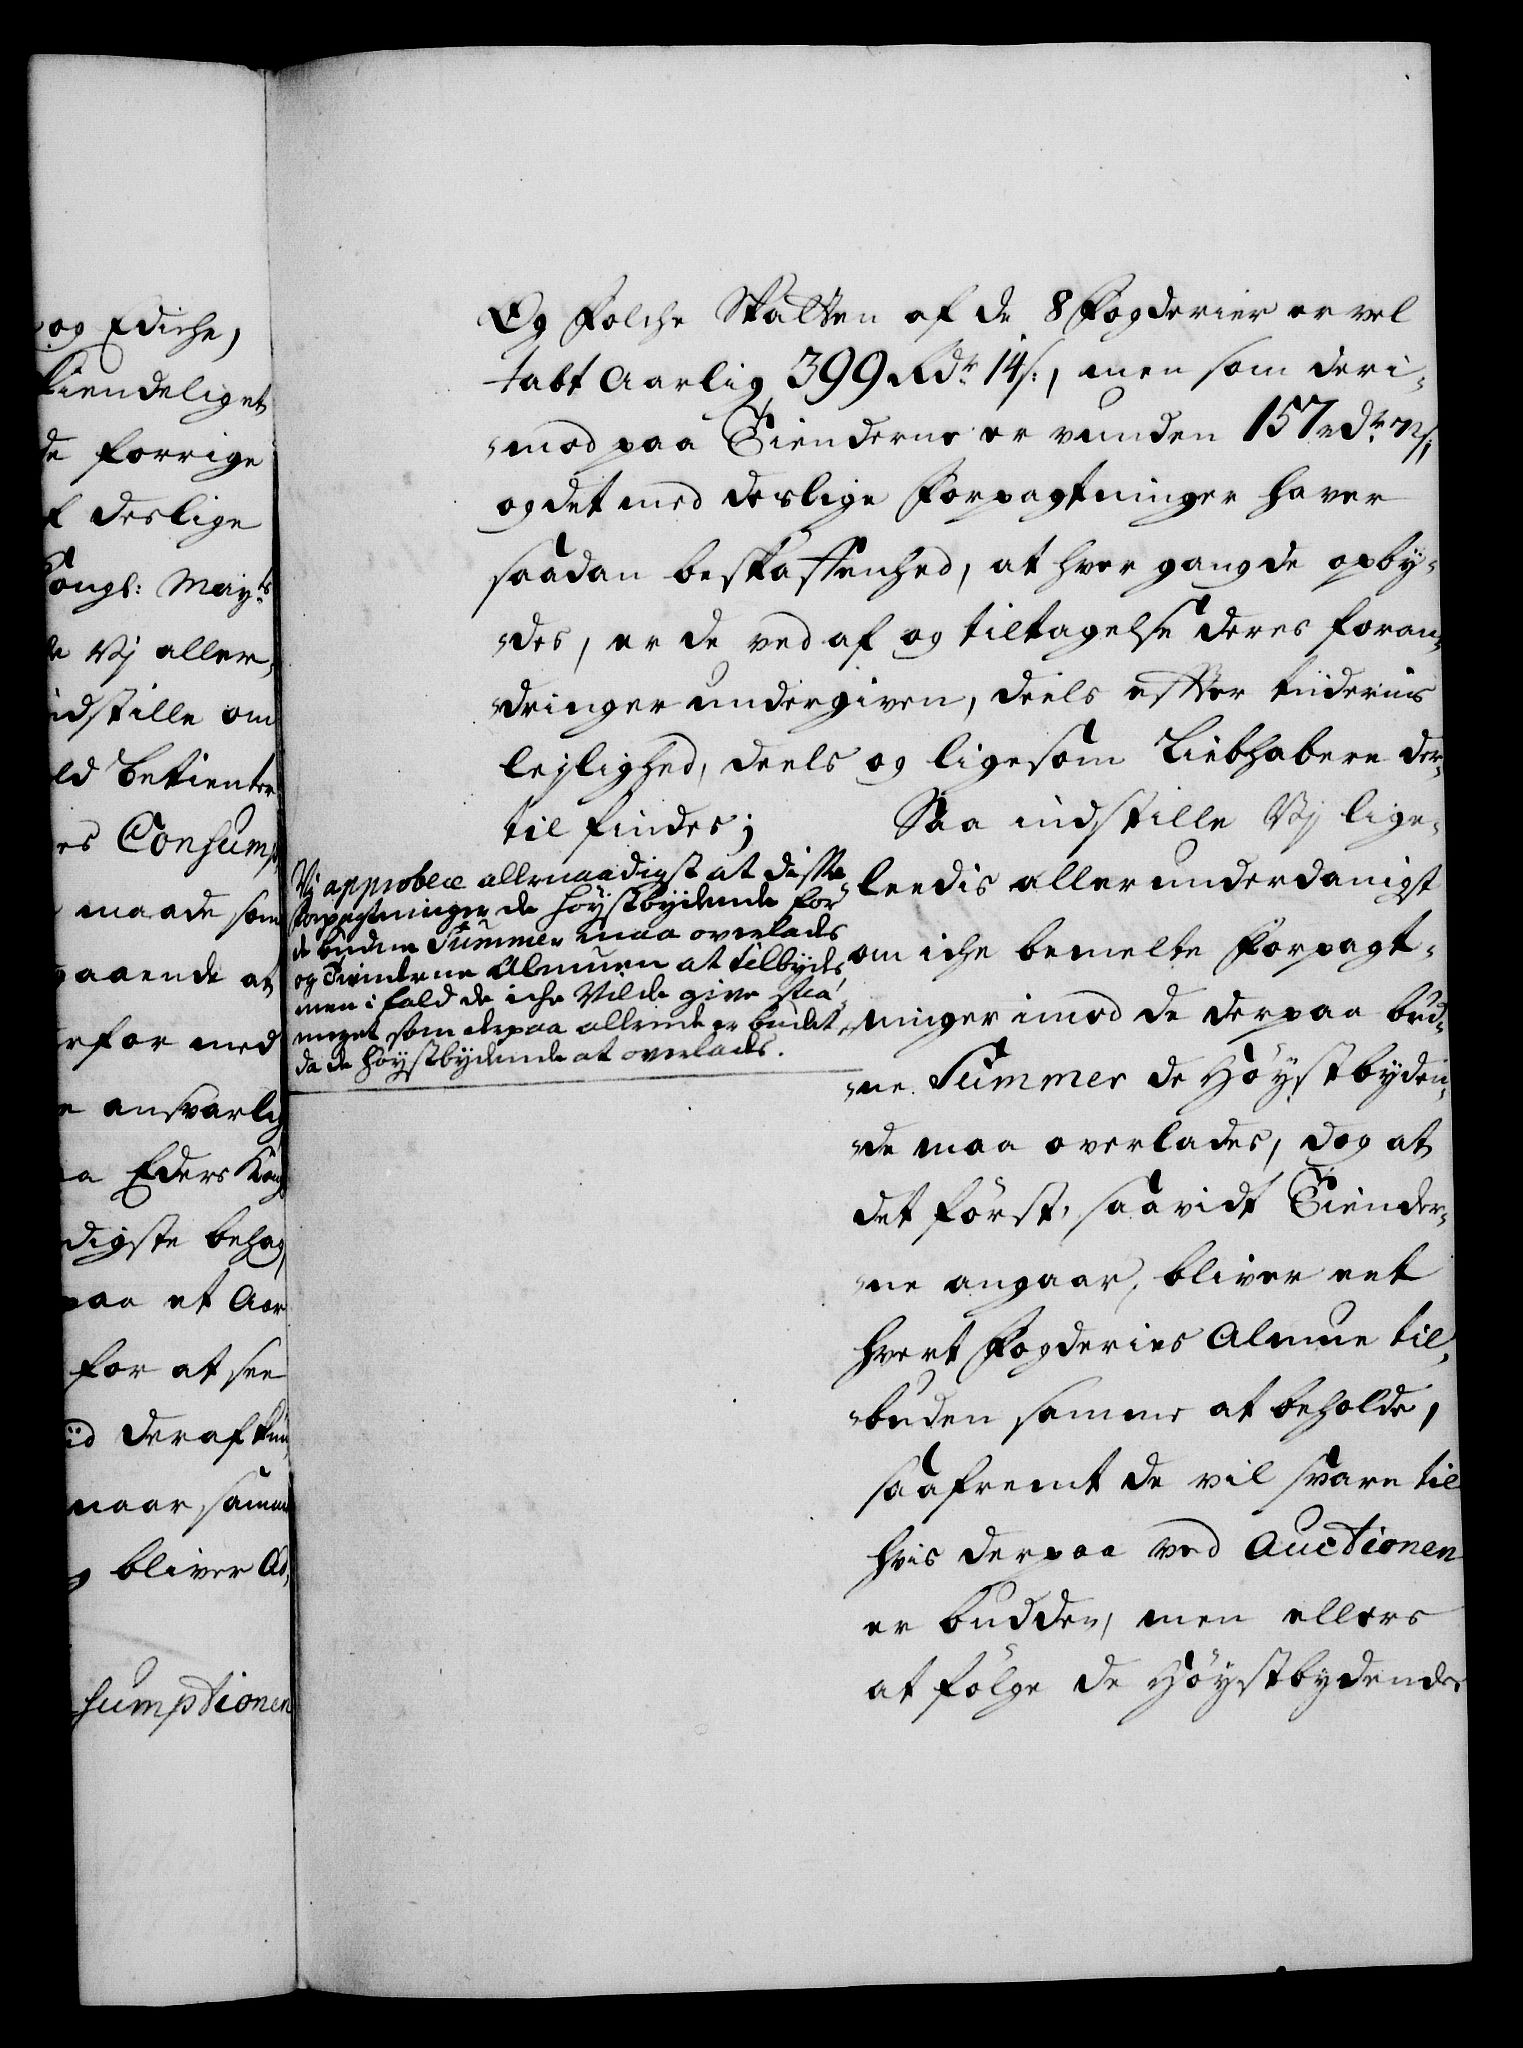 og Ediche,
kiendeliget
de forrige
deslige
Kongl: May:ts
Vj aller-
indstille om
ld betienter
es Consump
maade som
gaaende at
erfor med
e ansvarlig
a Eders Kong
digste behag,
paa et Aar
for at see
iid deraf kun
naar samme
bliver Ad,
sumptionen
Og Folche Skatten af de 8 Fogderier er vel
tabt Aarlig 399 Rdr 14 s:, men som deri-
mod paa Tienderne er vunden 157 rdr
og det med deslige Forpagtninger haver
saadan beskaffenhed, at hver gang de opby-
des, er de ved af og tiltagelse deres foran-
dringer undergiven, deels efter tidernis
lejlighed, deels og ligesom Liebhabere der-
til findes; Saa indstille Vj lige-
leedis allerunderdanigst
om iche bemelte Forpagt-
ninger imod de derpaa bud-
ne Summer de Høystbyden-
de maa overlades, dog at
det først, saavidt Tiender-
ne angaar, bliver eet
hvert Fogderies Almue til-
buden samme at beholde,
saafremt de vil svare til
hvis derpaa ved Auctionen
er budden, men ellers
at følge de Høystbydendes
Vj approbere allernaadigst at disse
Forpagtninger de høystbydende for
de budne Summer maa overlades
og Tienderne Almuen at tilbydes
men i fald de iche Vilde give saa
meget som derpaa allerede er budet,
da de høystbydende at overlades.